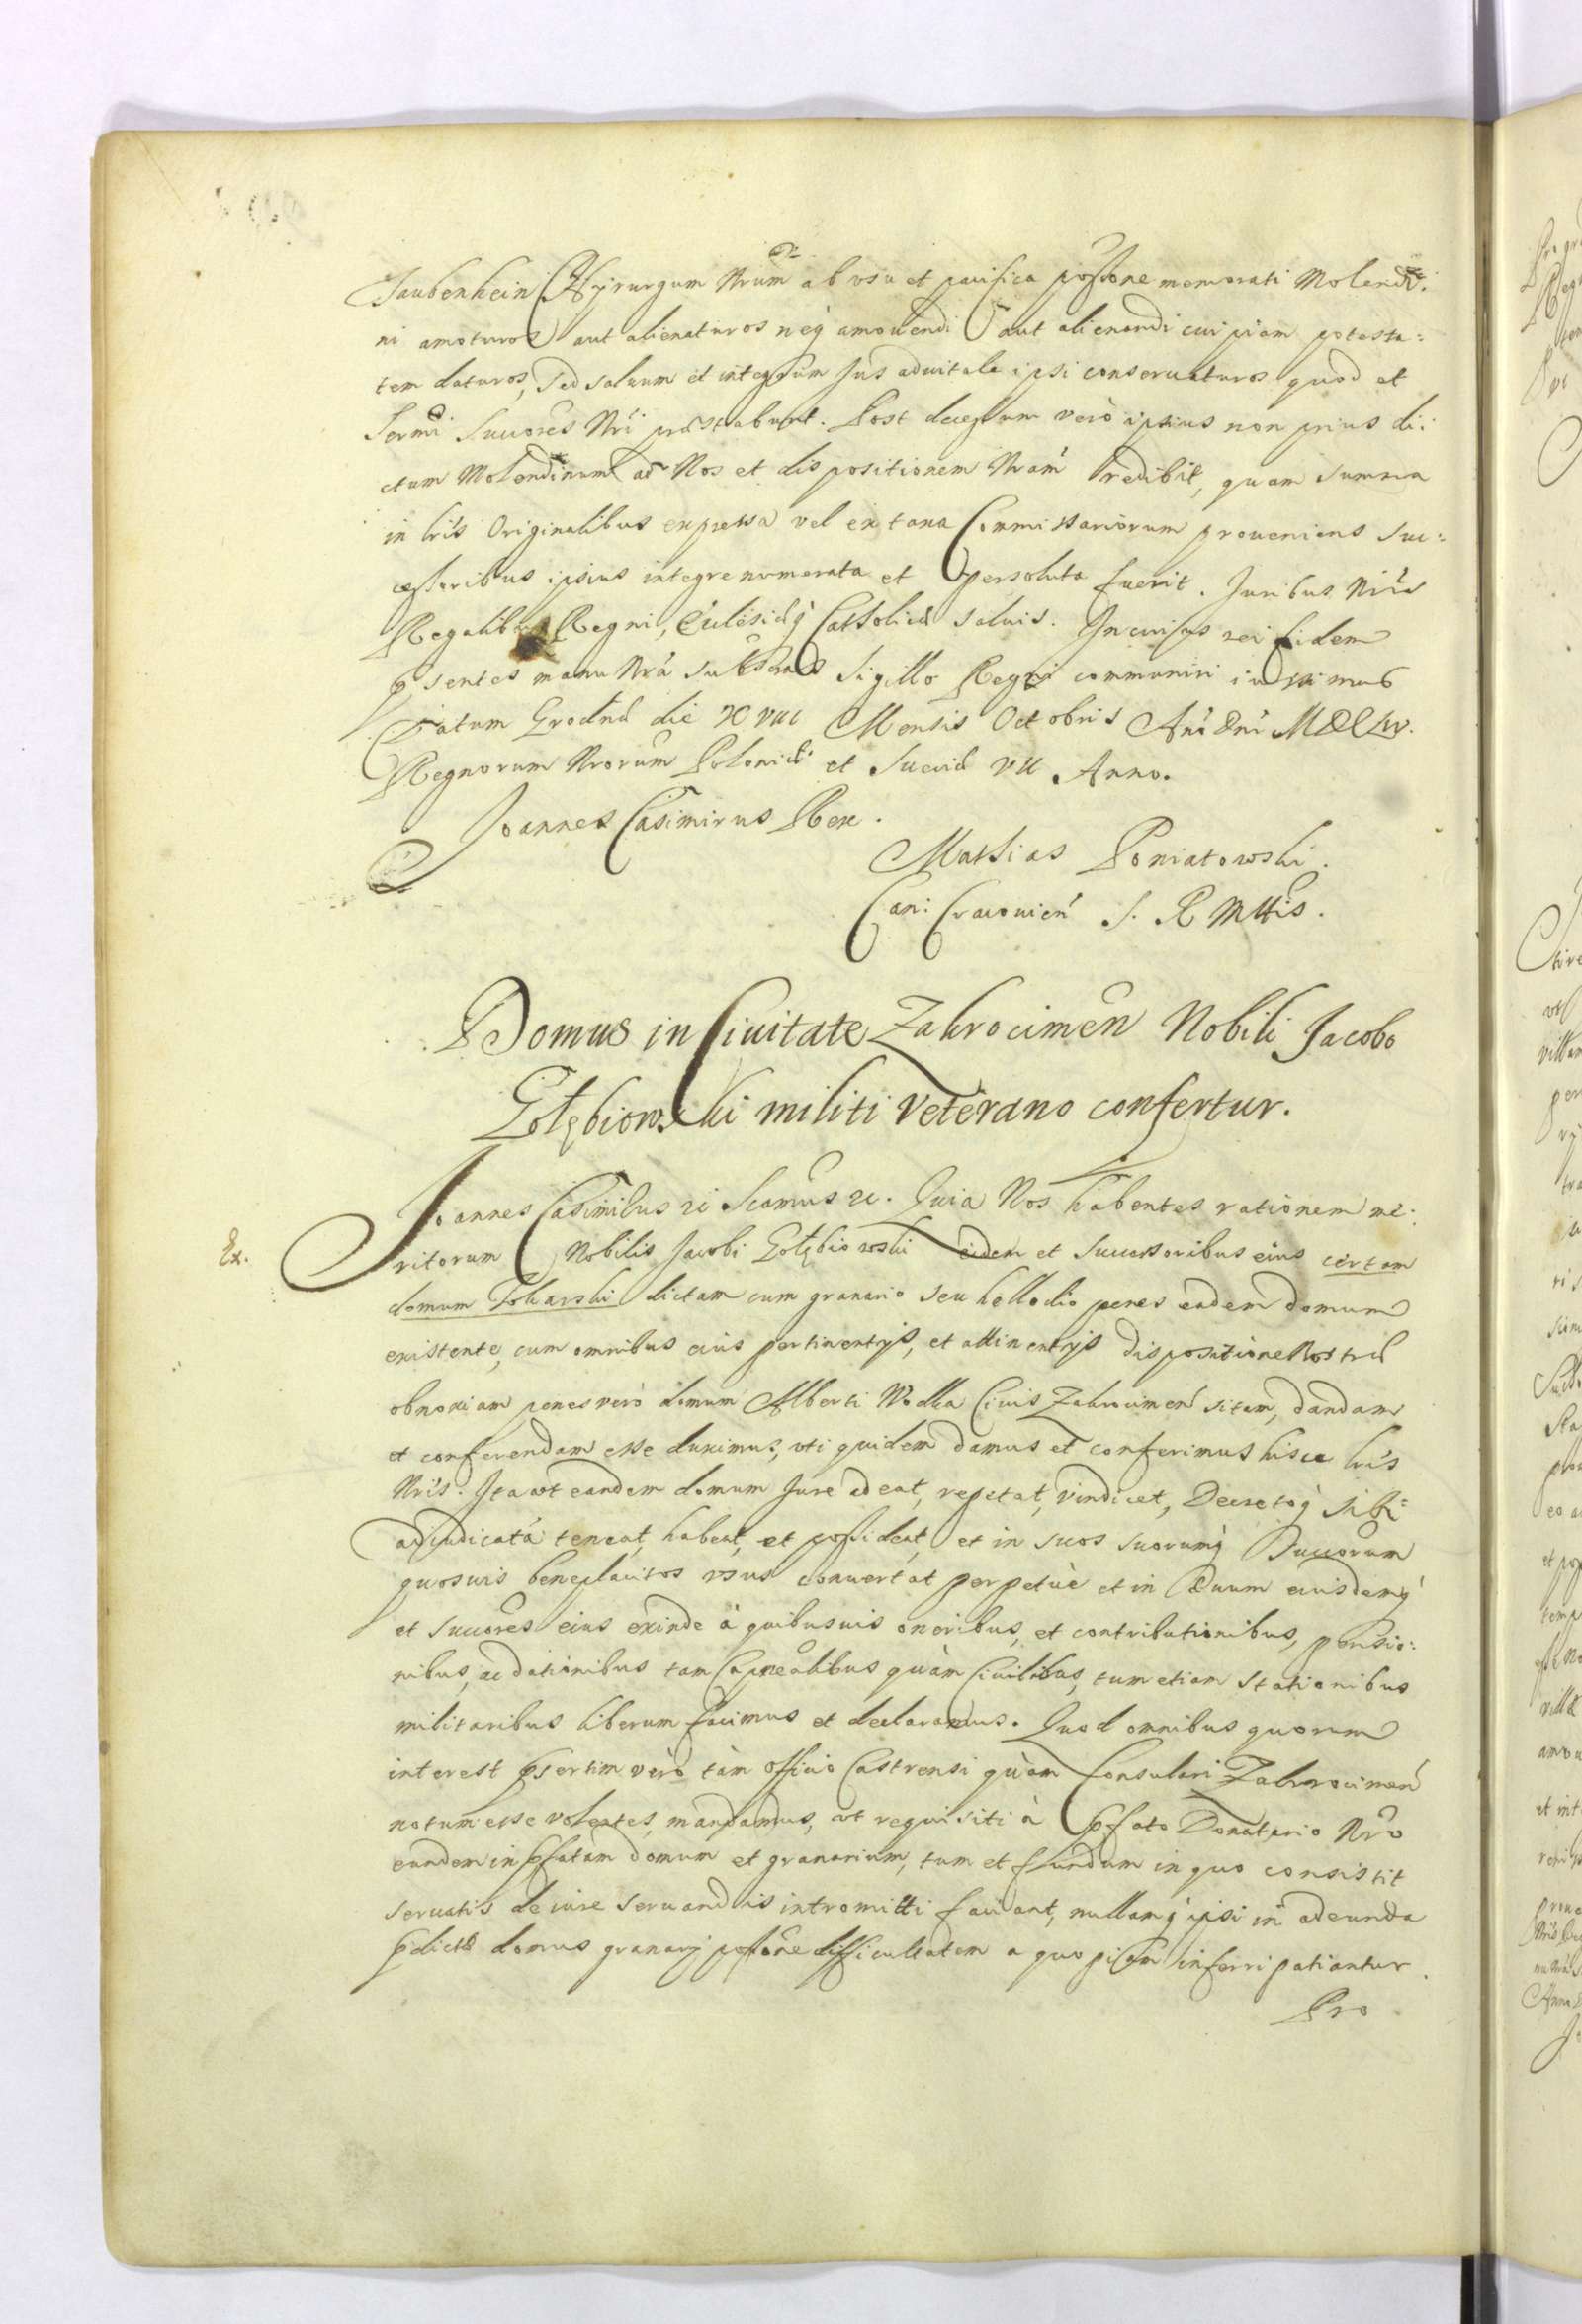 Taubenhein Chyrurgum Nrum ab usu et pacifica possione memorati Molendi:
ni amoturos aut alienaturos neq̃ amovendi aut alienandi cuipiam potesta:
tem daturos, sed salvum et integrum Jus advitale ipsi conservaturos quod et
Sermi Succores Nri præstabunt. Post decessum verò ipsius non prius di:
ctum Molendinum ad Nos et dispositionem Nram redibit, quam summa
in lris Originalibus expressa vel ex taxa Commissariorum proveniens suc:
cessoribus ipsius integre numerata et persoluta fuerit. Juribus Nris
Regalibus Regni, Eccłesiæq̃ Cattolicæ salvis. In cuius rei fidem
p̃sentes manu Nrã subscriptas Sigillo Regni communiri iussimus
Datum Grodnæ die XVIII Mensis Octobris Anõ Dni MDCLIV.
Regnorum Nrorum Poloniæ et Sueciæ VII Anno.
Joannes Casimirus Rex.
Mathias Poniatowski.
Can: Cracovień S. R Mttis.
Domus in Civitate Zakrocimeñ Nobili Jacobo
Gołębiowski militi Veterano confertur.
Ex.
Joannes Casimirus ɛc Seamus ɛc. Quia Nos habentes rationem me:
ritorum Nobilis Jacobi Gołębiowski eidem et Successoribus eius certam
domum Tokarski dictam cum granario seu hellodio penes eadem domum
existente, cum omnibus eius pertinentijs, et attinentijs dispositione Nostræ
obnoxiam penes verò domum Alberti Wodka Civis Zakrocimeń sitam, dandam
et conferendam esse duximus, uti quidem damus et conferimus hisce lris
Nris. Ita ut eandem domum Jure adeat, repetat, vindicet, Decretoq̃ sibi
adjudicatã teneat, habeat, et possideat, et in suos suorumq̃ Succorum
quosvis beneplacitos usus convertat perpetuè et in ævum eiusdemq̃
et Succores eius exinde à quibusvis oneribus, et contributionibus, pensio:
nibus, ac dationibus tam Capnealibus quàm Civilibus, tum etiam stationibus
militaribus liberum facimus et declaramus. Quod omnibus quorum
interest p̃sertim verò tàm officio Castrensi quàm Consulari Zakrocimeń
notum esse volentes, mandamus, ut requisiti à p̃fato Donatario Nrõ
eundem in p̃fatam domum et granarium, tum et fundum in quo consistit
servatis de iure servandis intromitti faciant, nullamq̃ ipsi in adeunda
p̃dictæ domus granarij possione difficultatem a quopiam inferri patiantur.
Pro